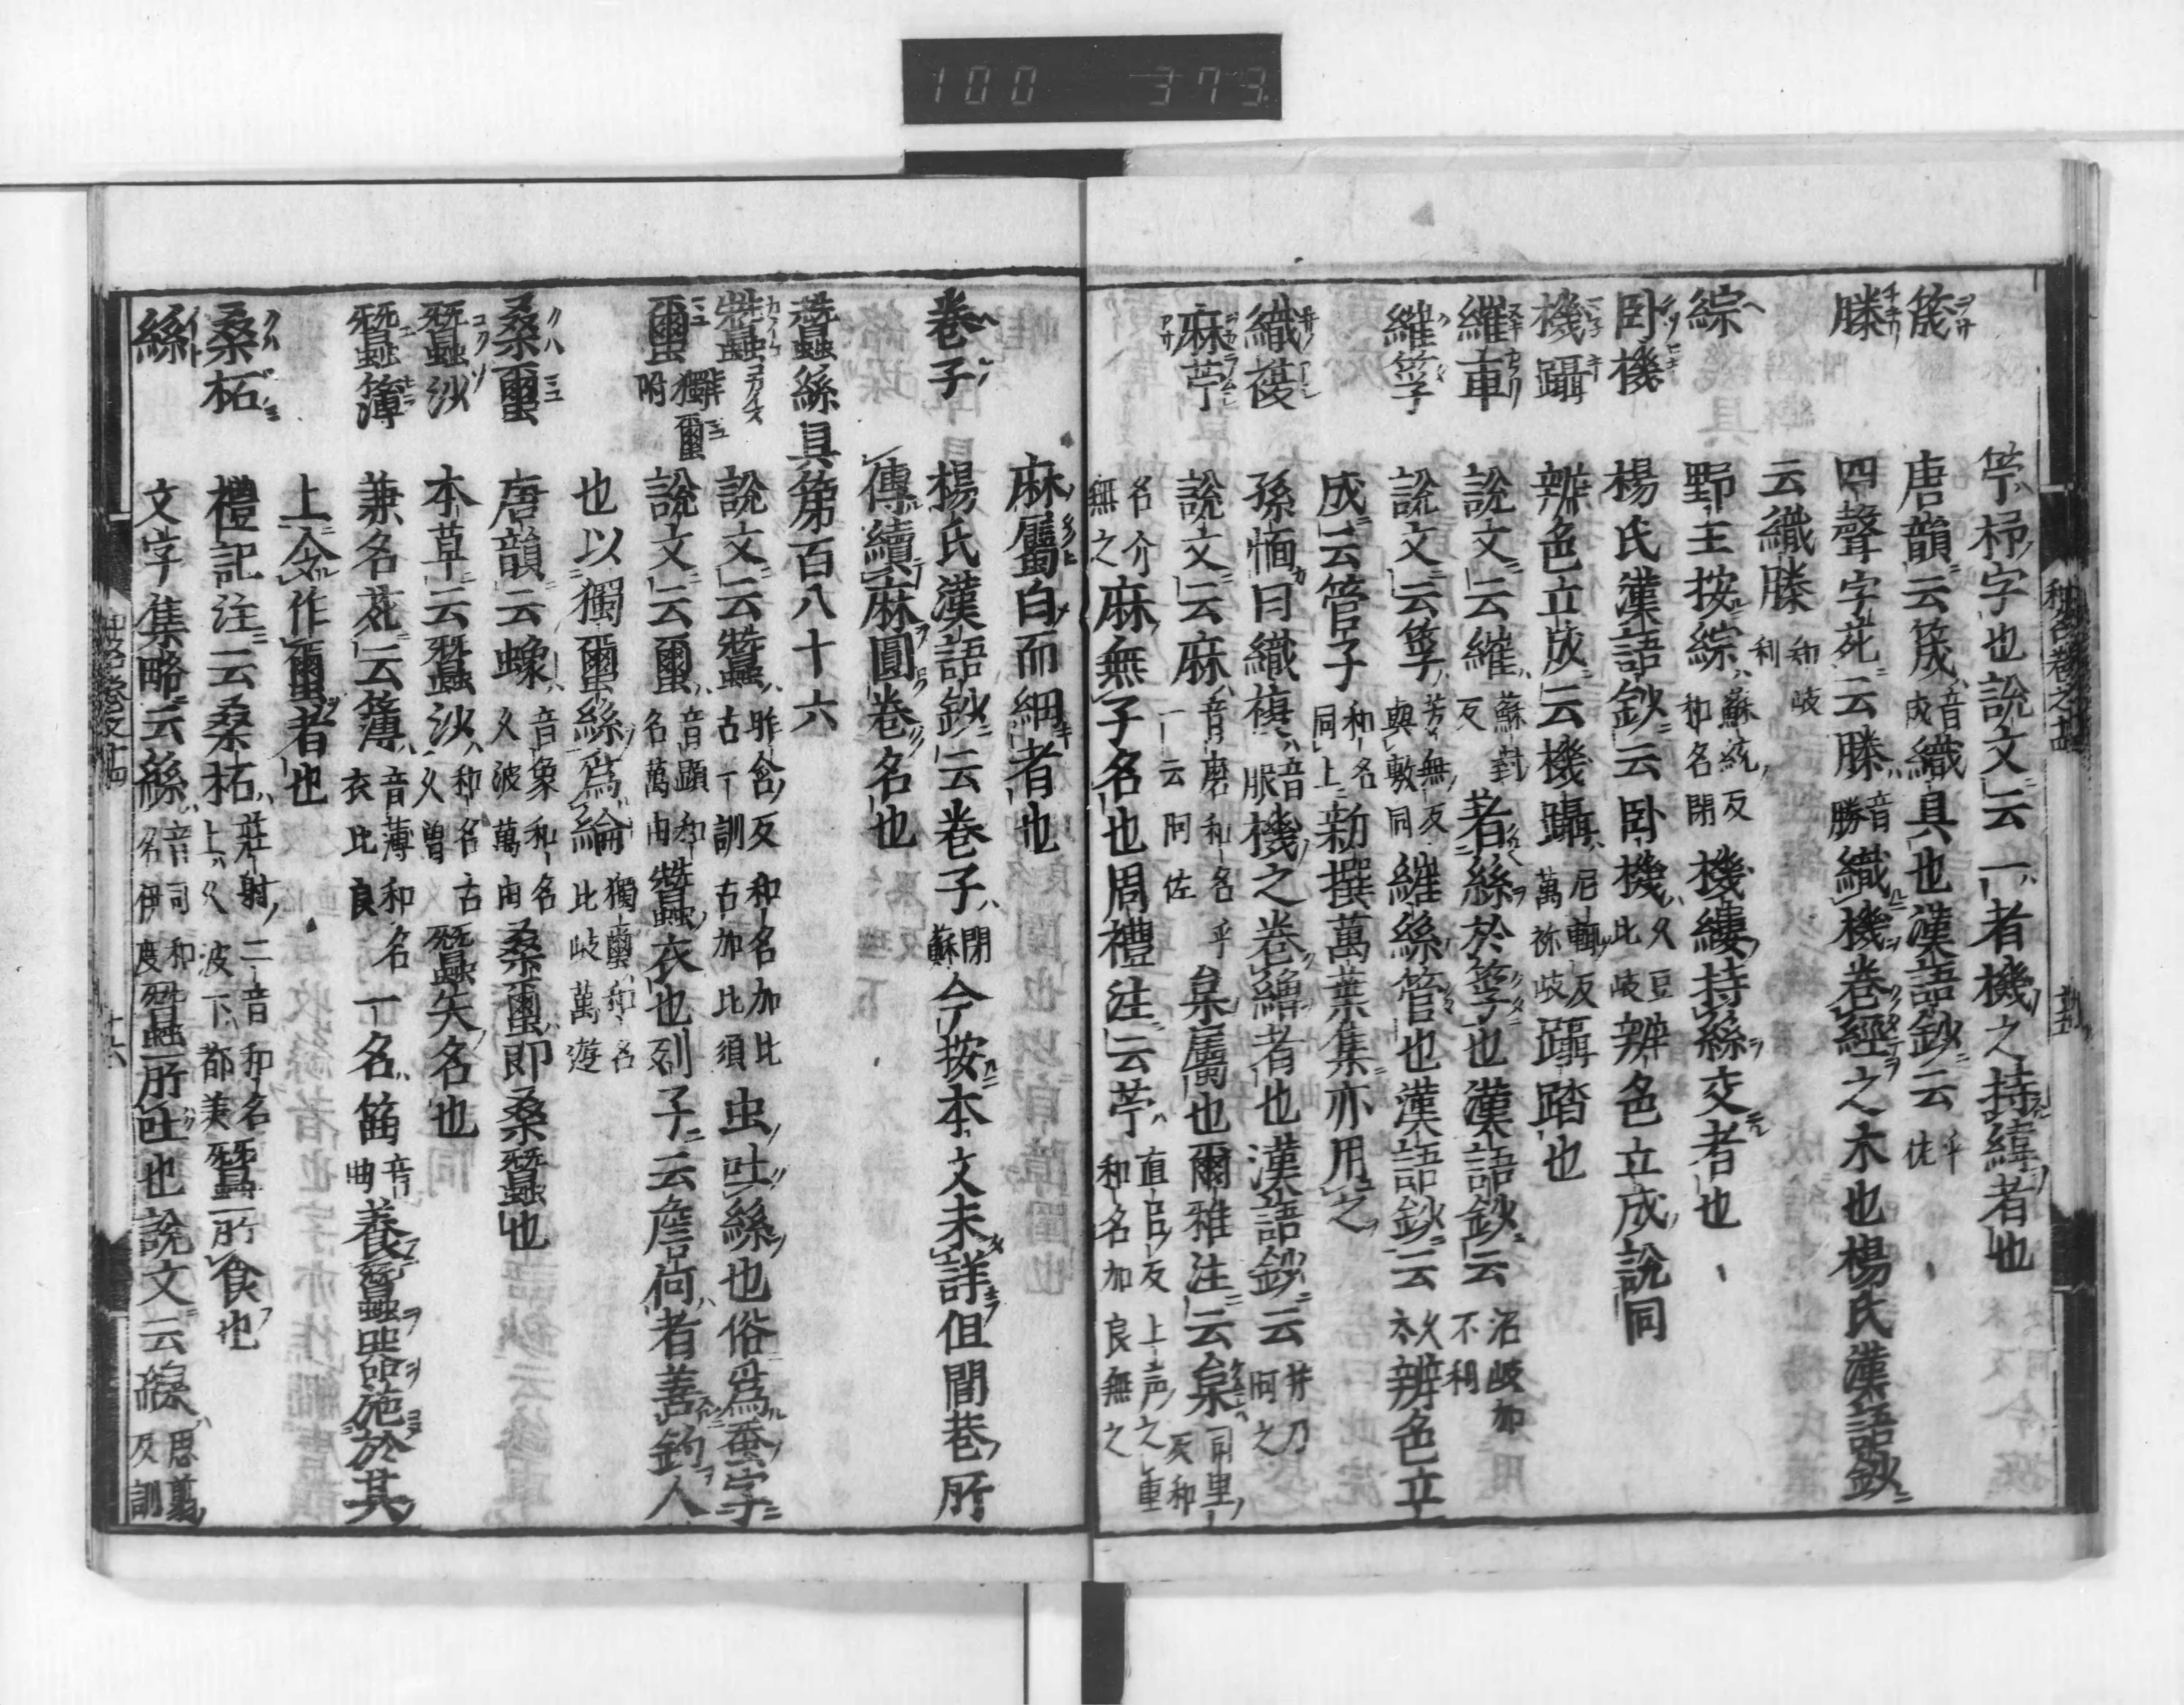 100 373
竺杼字也說文云一者機之持緯者也
筬 唐韻云筬音成織具也漢語鈔云
縢 四聲字苑云縢音勝織機卷經之木也楊氏漢語鈔
云織縢和岐利
綜 野王按綜蘇統反和名閇機縷持絲交者也
卧機 楊氏漢語鈔云卧機久豆比岐辨色立成說同
機躡 辨色立成云機躡尼輒反萬祢岐躡踏也
維車 說文云維蘇對反者絲於筟也漢語鈔云沼岐加不利
維筟 說文云筟芳無反與敷同維絲管也漢語鈔云久太辨色立
成云管子和名同上新撰萬葉集亦用之
織䙏 孫愐曰織䙏音服機之卷繒者也漢語鈔云
麻苧 說文云麻音磨和名乎一云阿佐枲屬也爾雅注云枲
名介無之麻無子名也周禮注云苧直呂反上声之重和名加良無之
麻屬白而細者也
卷子 楊氏漢語鈔云卷子閇蘇今按本文未詳但閭巷所
傳續麻圓卷名也
蠶絲具第百八十六
蠶 說文云蠶昨含反和名加比古一訓古加比須虫吐絲也俗爲蚕字
繭 獨繭附 說文云繭音顯和名萬由蠶衣也列子云詹何者善釣人
也以獨繭絲爲綸獨繭和名比岐萬遊
桑繭 唐韻云蟓音象和名久波萬由桑繭即桑蠶也
蠶沙 本草云蠶沙和名古久曽蠶矢名也
蠶簿 兼名苑云簿音薄和名衣比良一名筁音曲養蠶蟲卵施於其
上令作繭者也
桑柘 禮記注云桑柘莊射二音和名上久波下都美蠶所食也
絲 文字集略云絲音司和名伊度蠶所吐也說文云緦思慈反訓